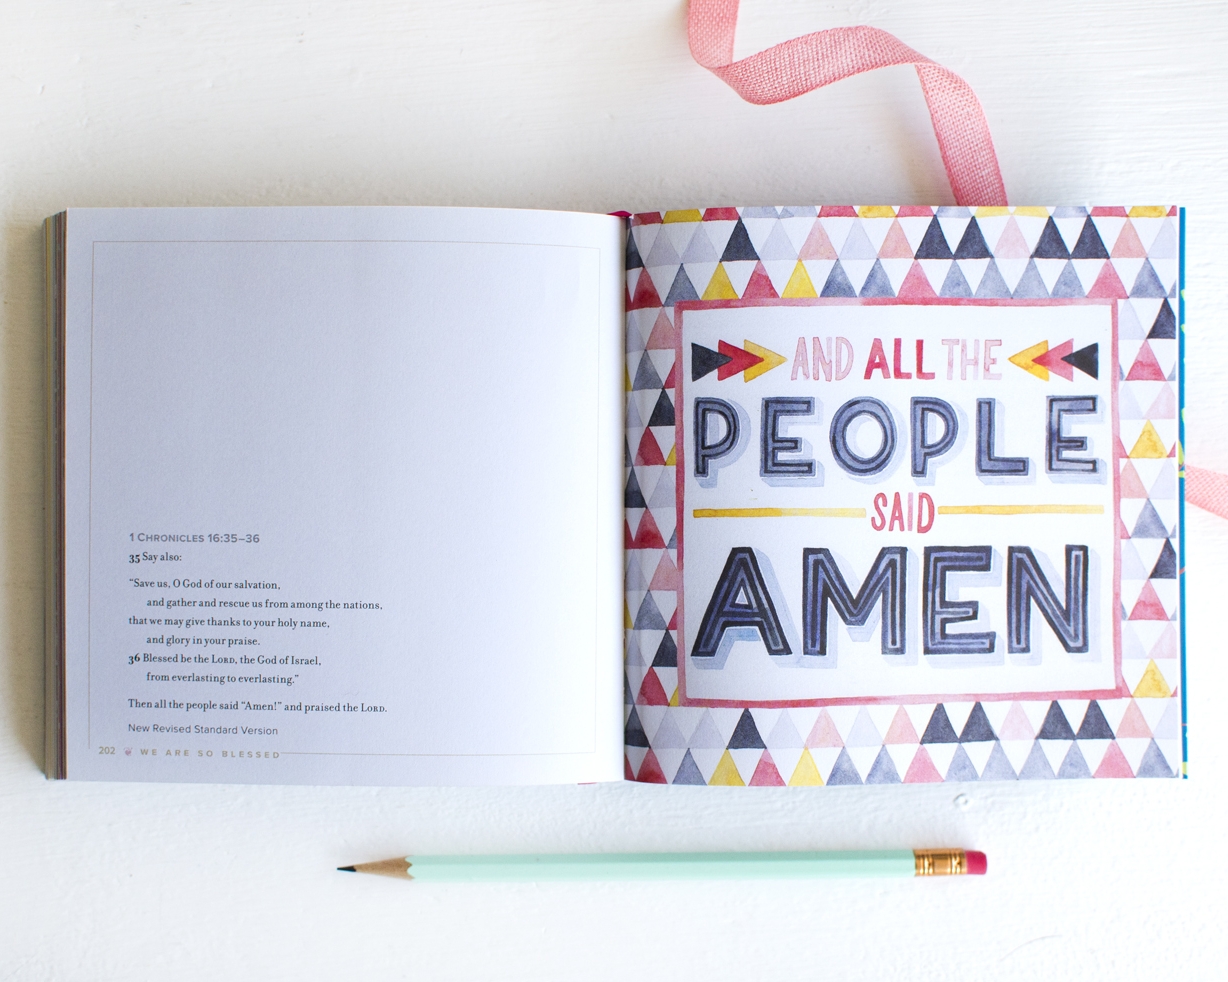 1 CHRONICLES 16:35–36
35 Say also:
“Save us, O God of our salvation,
and gather and rescue us from among the nations,
that we may give thanks to your holy name,
and glory in your praise.
36 Blessed be the LORD, the God of Israel,
from everlasting to everlasting.”
Then all the people said “Amen!” and praised the LORD.
New Revised Standard Version
202 WE ARE SO BLESSED
AND ALL THE
PEOPLE
SAID
AMEN